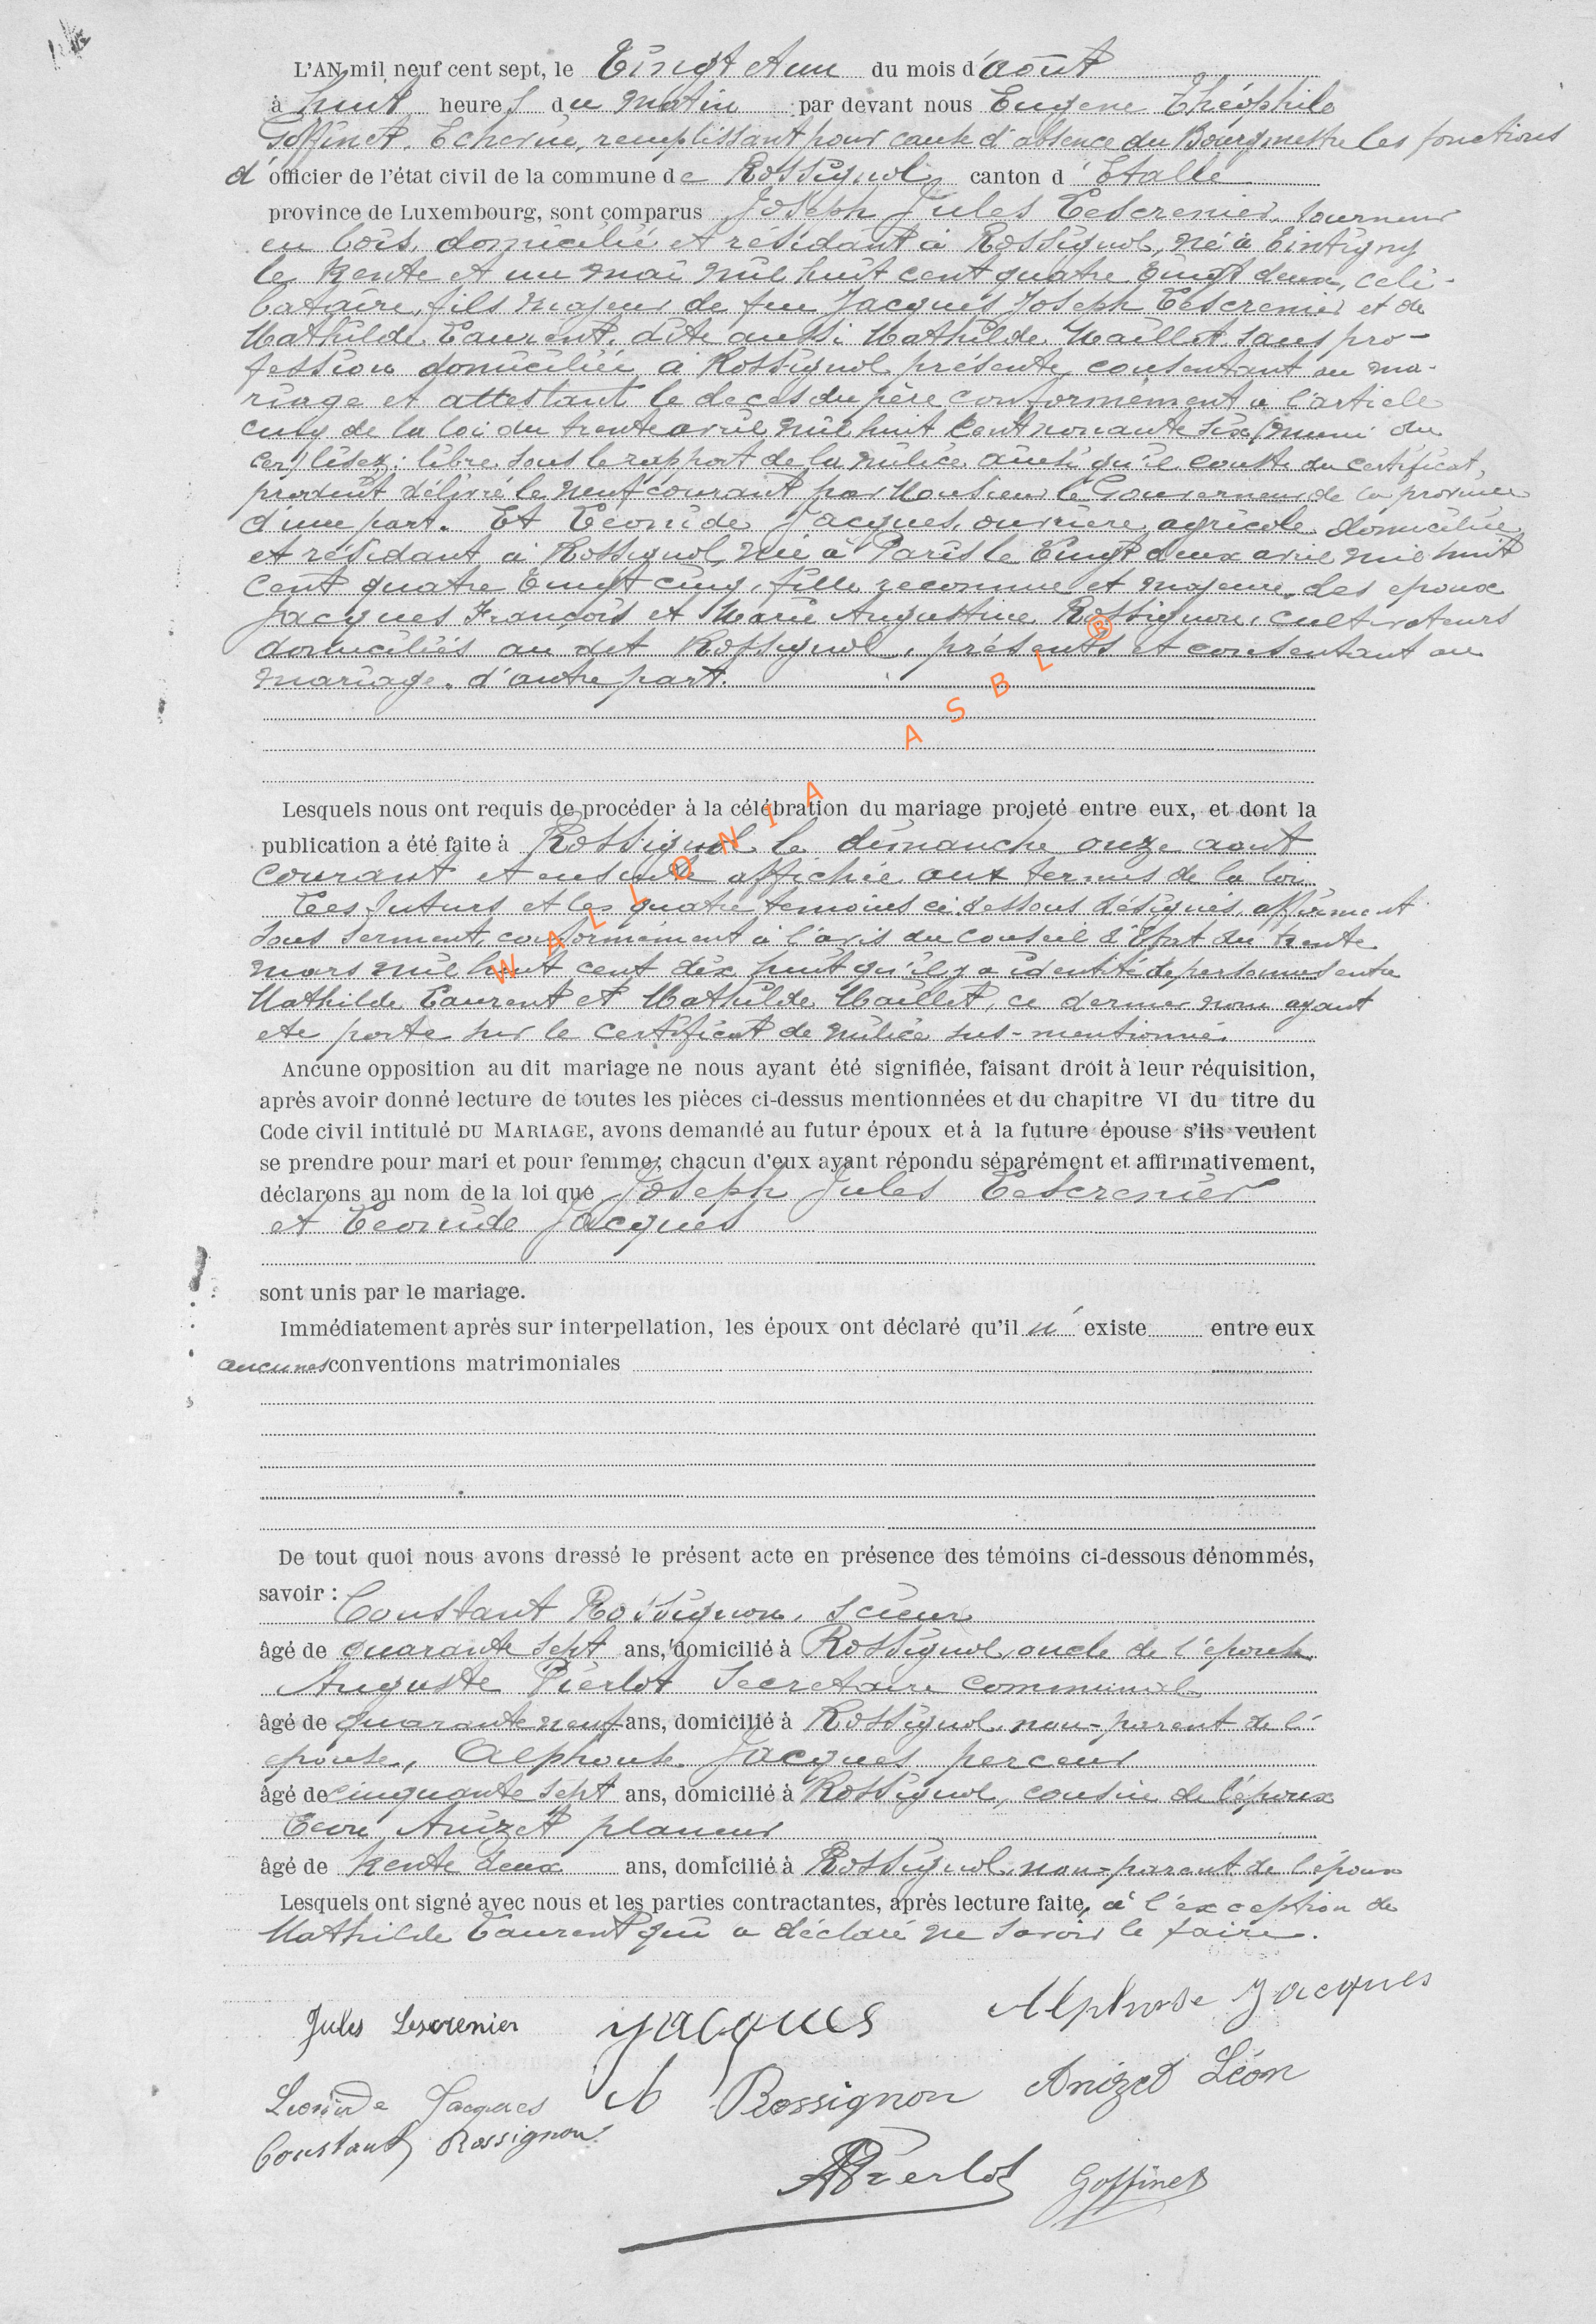 L'AN mil neuf cent sept, le Vingt et un du mois d'août
à huit heures du matin par devant nous Eugène Théophile
Goffinet, Echevin, remplissant pour cause d'absence du Bourgmestre les fonctions
d'officier de l'état civil de la commune de Rossignol, canton d'Etalle
province de Luxembourg, sont comparus Joseph Jules Lescrenier, tourneur
en bois, domicilié et résidant à Rossignol, né à Tintigny
le trente et un mai mil huit cent quatre vingt deux, céli-
bataire, fils majeur de feu Jacques Joseph Lescrenier et de
Mathilde Laurent, dite aussi Mathilde Maillet, sans pro-
fession domiciliée à Rossignol, présente, consentant au ma-
riage et attestant le décès du père conformément à l'article
cinq de la loi du trente avril mil huit cent nonante six (muni du
cer) lisez: libre sous le rapport de la milice ainsi qu'il conste du certificat,
produit délivré le neuf courant par Monsieur le Gouverneur de la province
d'une part. Et Léonide Jacques, ouvrière agricole domiciliée
et résidant à Rossignol, née à Paris le Vingt deux avril mil huit
cent quatre vingt cinq, fille reconnue et majeure des epoux
Jacques François et Marie Augustine Rossignon, cultivateurs
domiciliés au dit Rossignol, présents et consentant au
mariage, d'autre part.
Lesquels nous ont requis de procéder à la célébration du mariage projeté entre eux, et dont la
publication a été faite à Rossignol le dimanche onze aout
courant et ensuite affichée aux termes de la loi.
Les futurs et les quatre temoins ci dessous désignés, affirment
sous serment, conformément à l'avis du conseil d'Etat du trente
mars mil huit cent dix huit qu'il y a identité de personnes entre
Mathilde Laurent et Mathilde Maillet, ce dernier nom ayant
ete porte sur le certificat de milice sus-mentionné.
Aucune opposition au dit mariage ne nous ayant été signifiée, faisant droit à leur réquisition,
après avoir donné lecture de toutes les pièces ci-dessus mentionnées et du chapitre VI du titre du
Code civil intitulé DU MARIAGE, avons demandé au futur époux et à la future épouse s'ils veulent
se prendre pour mari et pour femme; chacun d'eux ayant répondu séparément et affirmativement,
déclarons au nom de la loi que Joseph Jules Lescrenier
et Léonide Jacques
sont unis par le mariage.
Immédiatement après sur interpellation, les époux ont déclaré qu'il n' existe entre eux
aucunes conventions matrimoniales
De tout quoi nous avons dressé le présent acte en présence des témoins ci-dessous dénommés,
savoir : Constant Rossignon, scieur
âgé de quarante sept ans, domicilié à Rossignol, oncle de l'épouse
Auguste Pierlot Secretaire Communal
âgé de quarante neuf ans, domicilié à Rossignol, non-parent de l'
epouse, Alphonse Jacques perceur
âgé de cinquante sept ans, domicilié à Rossignol, cousin de l'époux
Léon Anizet planeur
âgé de trente deux ans, domicilié à Rossignol, non-parent de l'époux
Lesquels ont signé avec nous et les parties contractantes, après lecture faite, à l'exception de
Mathilde Laurent qui a déclaré ne savoir le faire.
Jules Lescrenier Jacques Alphonse Jacques
Léonide Jacques M Rossignon Anizet Léon
Constant Rossignon
APierlot Goffinet
WALLONIA ASBL ®